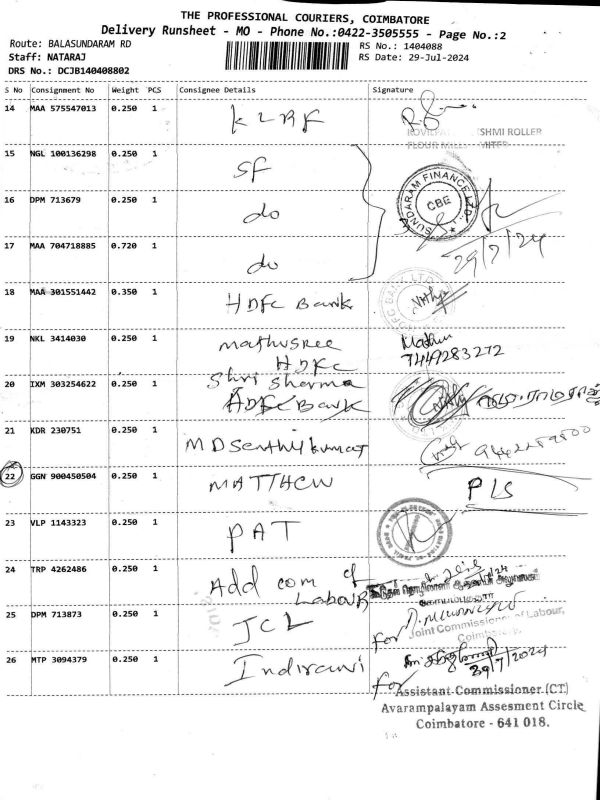 THE PROFESSIONAL COURIERS, COIMBATORE
Delivery Runsheet - MO - Phone No.:0422-3505555 - Page No.:2
Route: BALASUNDARAM RD
RS No.: 1404088
Staff: NATARAJ
RS Date: 29-Jul-2024
DRS No.: DCJB140408802
S No Consignment No Weight PCS Consignee Details Signature
14 MAA 575547013 0.250 1 KLRF
SHMI ROLLER
FLOUR MILLS
15 NGL 100136298 0.250 1 SF
SUNDARAM FINANCE LTD.
CBE
16 DPM 713679 0.250 1 do
17 MAA 704718885 0.720 1 do
29/7/24
18 MAA 301551442 0.350 1 HDFC Bank
19 NKL 3414030 0.250 1 Mathusree
HDFC
7449283272
20 IXM 303254622 0.250 1 Shri Sharma
HDFC Bank
21 KDR 230751 0.250 1 MD Senthilkumar
22 GGN 900450504 0.250 1 MATTHEW PLS
23 VLP 1143323 0.250 1 PAT
24 TRP 4262486 0.250 1 Add com of
Labour
25 DPM 713873 0.250 1 JCL
for Joint Commissioner of Labour,
Coimbatore.
26 MTP 3094379 0.250 1 Indirani
29/7/2024
for Assistant Commissioner (CT)
Avarampalayam Assesment Circle
Coimbatore - 641 018.